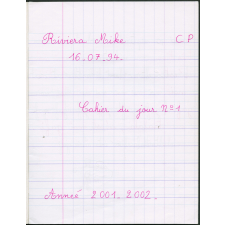 Riviera Mike C P
16.07.94.
Cahier du jour N°1
Anneé 2001-2002.